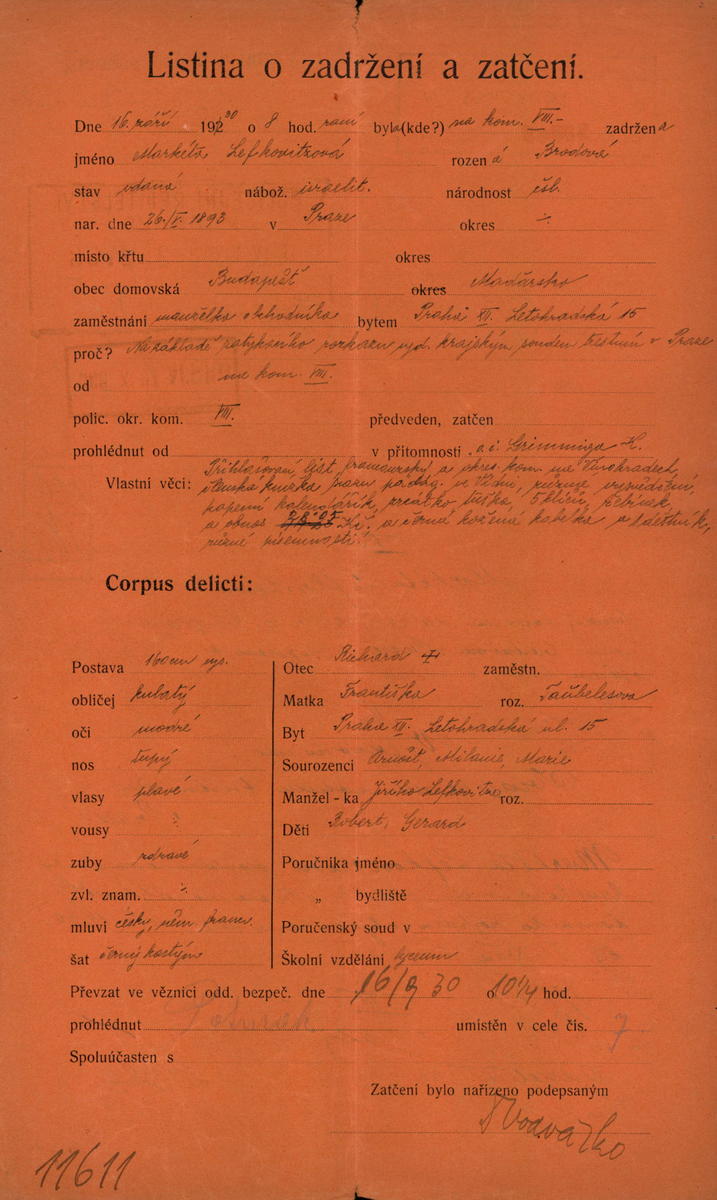 Listina o zadržení a zatčení.
Dne 16. září 1930 o 8 hod. ranní byla (kde?) na kom. VIII. zadržena
jméno Markéta Lefkovitzová rozená Brodová
stav vdaná nábož. israelit. národnost čsl.
nar. dne 26./V. 1893 v Praze okres ÷
místo křtu okres
obec domovská Budapešť okres Maďarsko
zaměstnání manželka obchodníka bytem Praha VII. Letohradská 15
proč? Na základě zatykacího rozkazu vyd. krajským soudem trestním v Praze
od na kom. VIII.
polic. okr. kom. VIII. předveden, zatčen
prohlédnut od v přítomnosti Grimminga K.
Vlastní věci: Přihlašovací list a okres. kom. na Vinohradech,
různá vysvědčení,
papírní kalendářík, zrcátko, tužka, 5 klíčů, hřbínek,
a obnos Kč. a černá kožená kabelka a deštník,
různé písemnosti
Corpus delicti:
Postava 160 cm vys.
obličej kulatý
oči modré
nos tupý
vlasy plavé
vousy ÷
zuby zdravé
zvl. znam. ÷
mluví česky, něm. franc.
šat černý kostým
Otec Richard ✝ zaměstn.
Matka Františka roz. Taubelesova
Byt Praha VII. Letohradská ul. 15
Sourozenci Arnošt, Milanie, Marie
Manžel - ka Jiřího Lefkovitze roz.
Děti Robert, Gerard
Poručníka jméno
„ bydliště
Poručenský soud v
Školní vzdělání lyceum
Převzat ve věznici odd. bezpeč. dne 16/9 30 o 10¼ hod.
prohlédnut umístěn v cele čís. 7
Spoluúčasten s
Zatčení bylo nařízeno podepsaným
11611